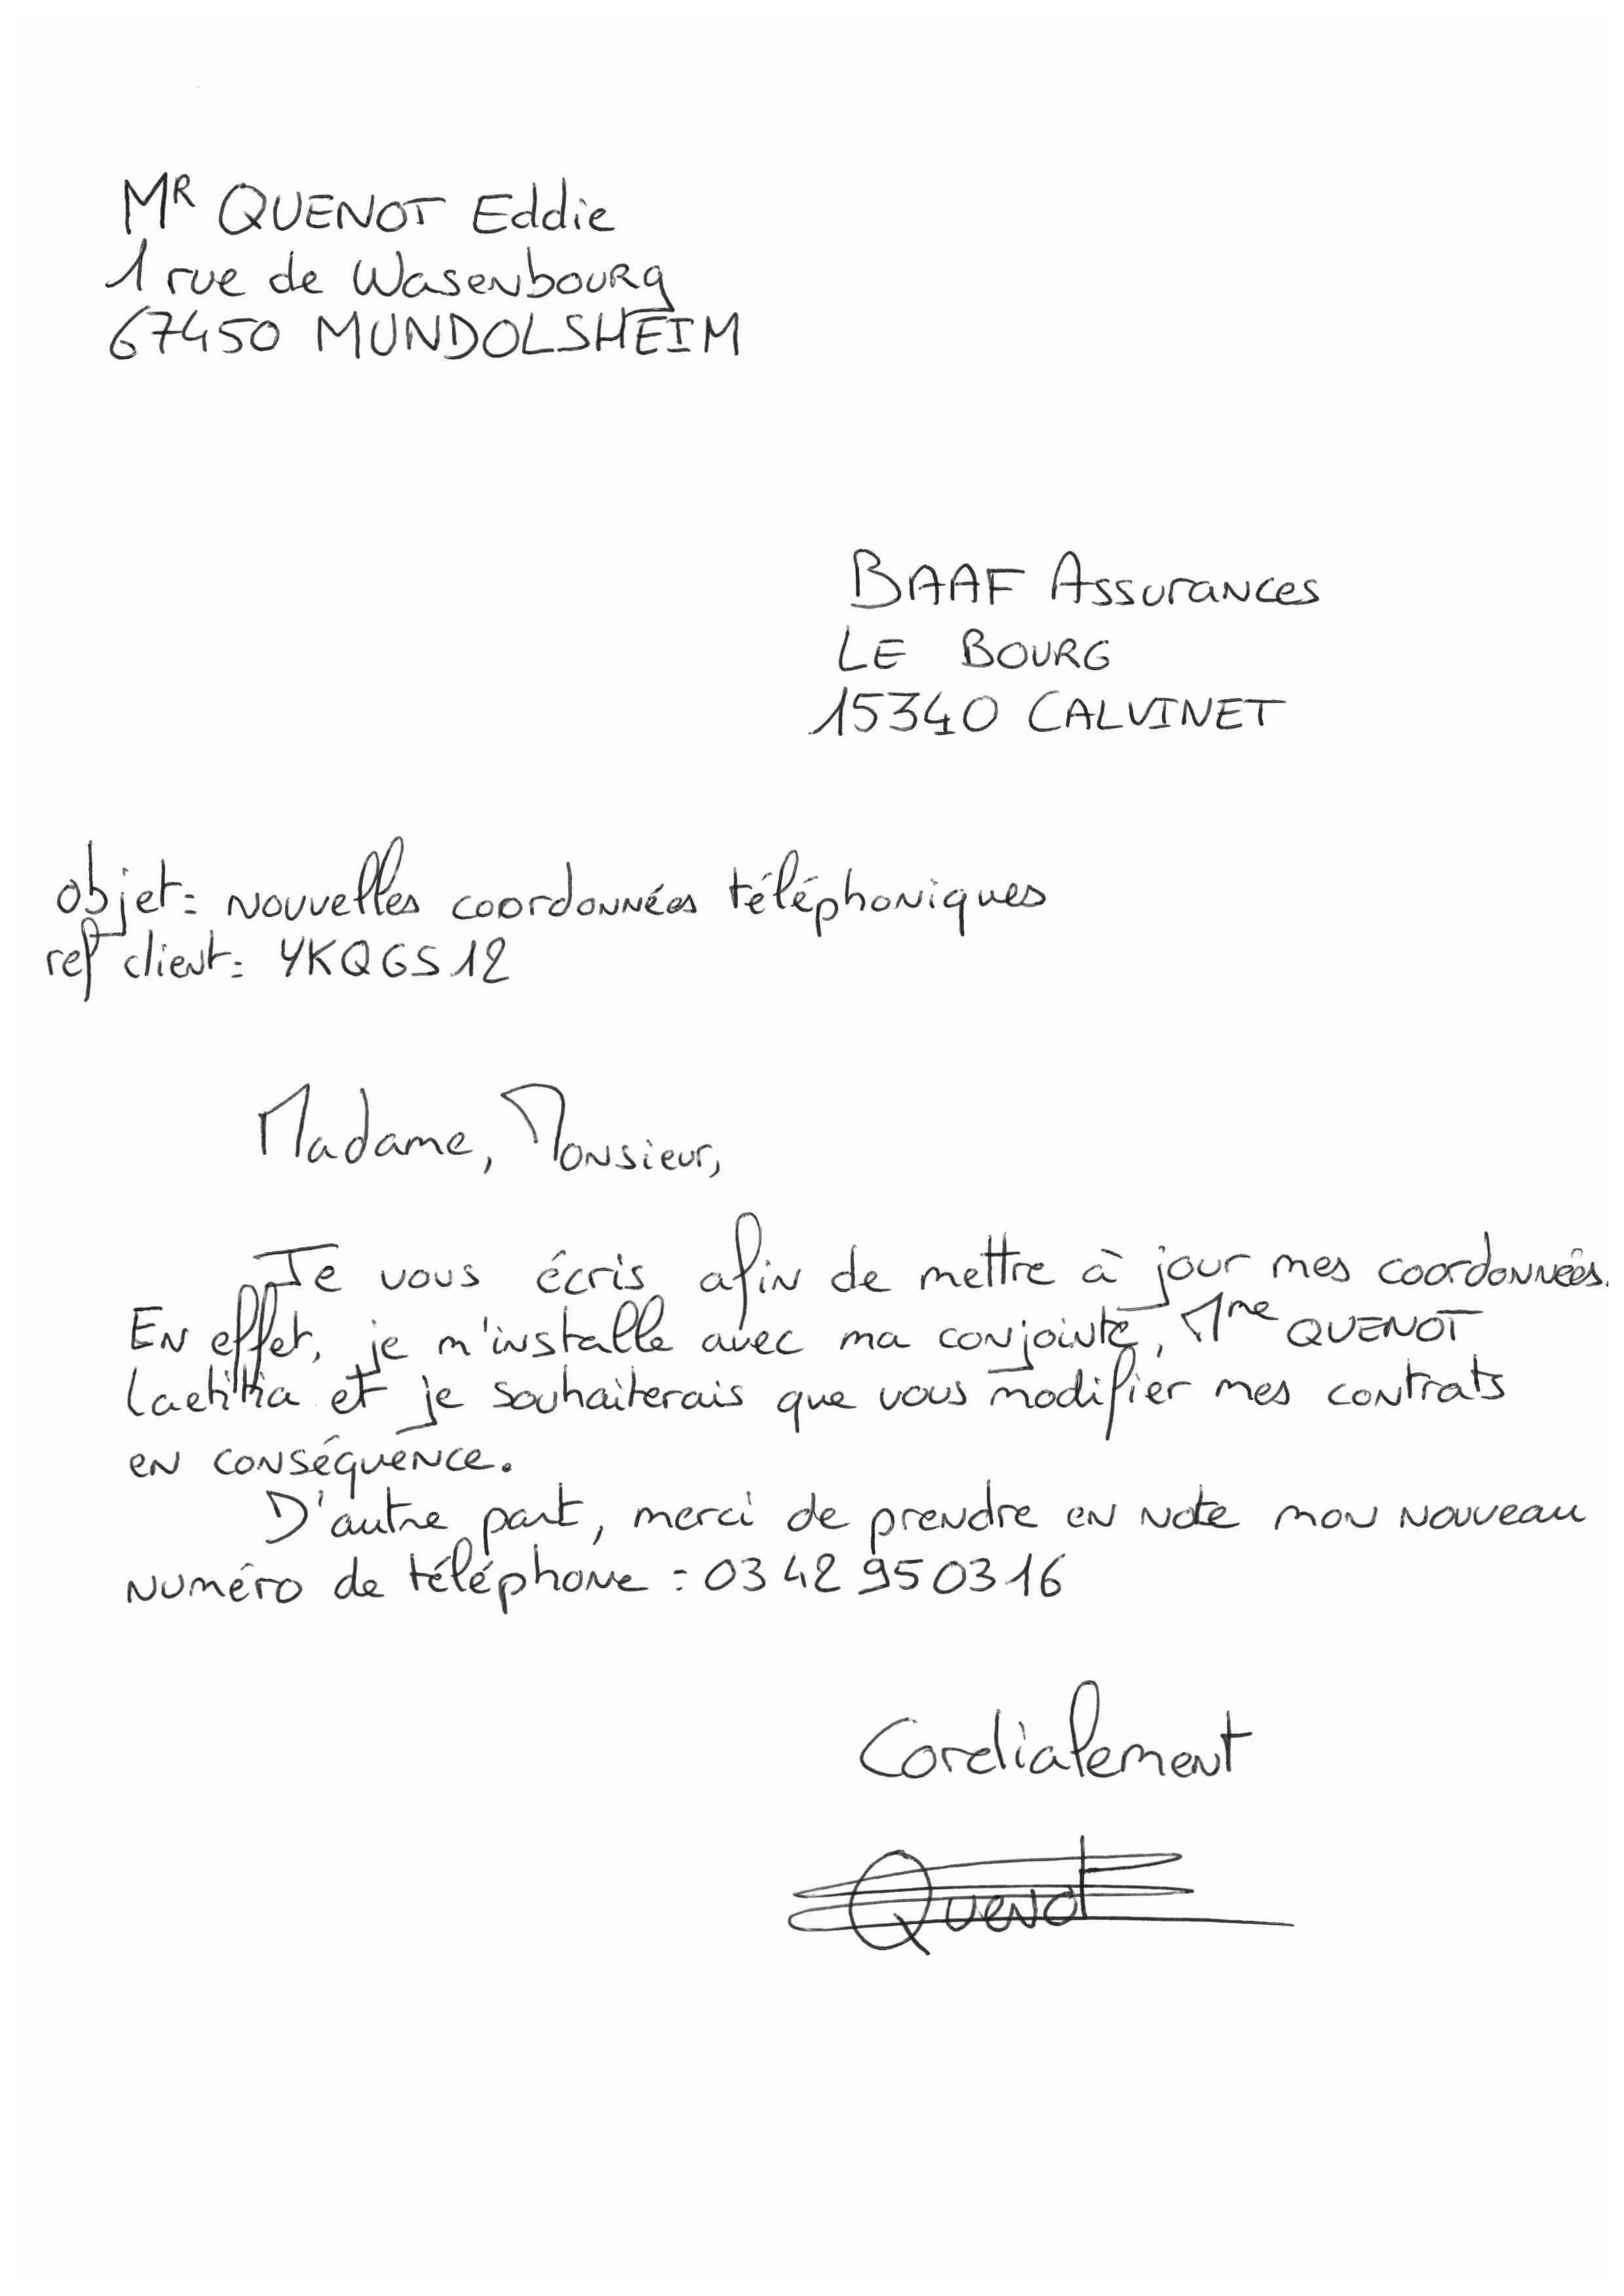 MR QUENOT Eddie
1 rue de Wasenbourg
67450 MUNDOLSHEIM
BAAF Assurances
LE BOURG
15340 CALVINET
objet: nouvelles coordonnées téléphoniques
ref client: YKQGS12
Madame, Monsieur,
Je vous écris afin de mettre à jour mes coordonnées.
En effet, je m'installe avec ma conjointe, Mme QUENOT
Laetitia et je souhaiterais que vous modifier mes contrats
en conséquence.
D'autre part, merci de prendre en note mon nouveau
numéro de téléphone : 03 42 95 03 16
Cordialement
Quenot